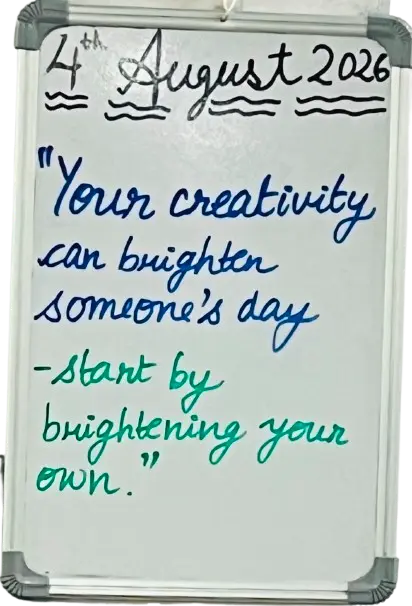 4th August 2026
"Your creativity
can brighten
someone's day
-start by
brightening your
own."